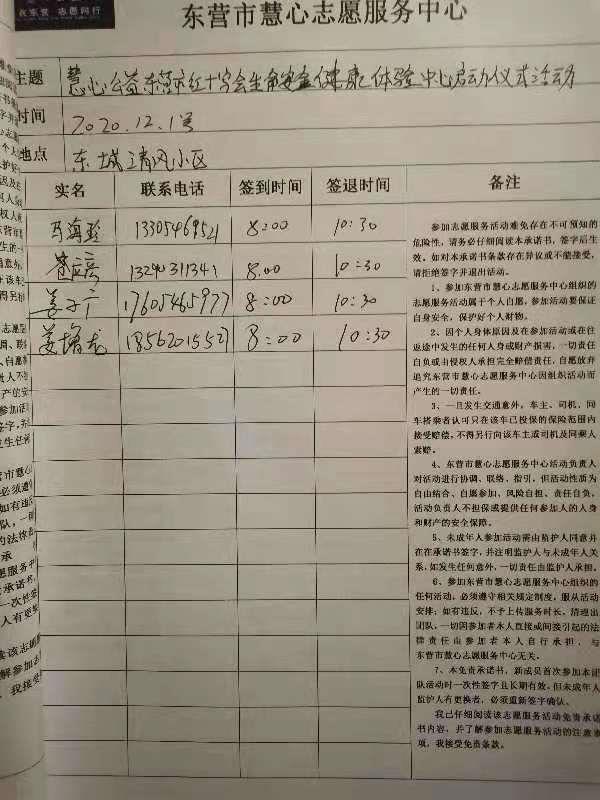 东营市慧心志愿服务中心
志愿同行
主题 慧心公益东营市红十字会生命安全健康体验中心启动仪式活动
时间 2020.12.1号
地点 东城清风小区
实名 联系电话 签到时间 签退时间 备注
13305469521 8:00 10:30
8:00 10:30
姜子 17605465977 8:00 10:30
姜增龙 18562015527 8:00 10:30
参加志愿服务活动难免存在不可预知的
危险性，请务必仔细阅读本承诺书，签字后生
效。如对本承诺条款存在异议或不能接受，
请拒绝签字并退出活动。
1、参加东营市慧心志愿服务中心组织的
志愿服务活动属于个人自愿，参加活动要保证
自身安全，保护好个人财物。
2、因个人身体原因及在参加活动或在往
返途中发生的任何人身或财产损害，一切责任
自负或由侵权人承担完全赔偿责任，自愿放弃
追究东营市慧心志愿服务中心因组织活动而
产生的一切责任。
3、一旦发生交通意外，车主、司机、同
车搭乘者认可只在该车已投保的保险范围内
接受赔偿，不得另行向该车主或司机及同乘人
索赔。
4、东营市慧心志愿服务中心活动负责人
对活动进行协调、联络、指引，但活动性质为
自由结合、自愿参加、风险自担、责任自负，
活动负责人不担保或提供任何参加人的人身
和财产的安全保障。
5、未成年人参加活动需由监护人同意并
在在承诺书签字，并注明监护人与未成年人关
系，如发生任何意外，一切责任由监护人承担。
6、参加东营市慧心志愿服务中心组织的
任何活动，必须遵守相关规定制度，服从活动
安排；如有违反，不予上传服务时长，清理出
团队，一切因参加者本人直接或间接引起的法
律责任由参加者本人自行承担，与
东营市慧心志愿服务中心无关。
7、本免责承诺书，新成员首次参加本团
队活动时一次性签字且长期有效。但未成年人
监护人有更换者，必须重新签字确认。
我已仔细阅读该志愿服务活动免责承诺
书内容，并了解参加志愿服务活动的注意事
项，我接受免责条款。